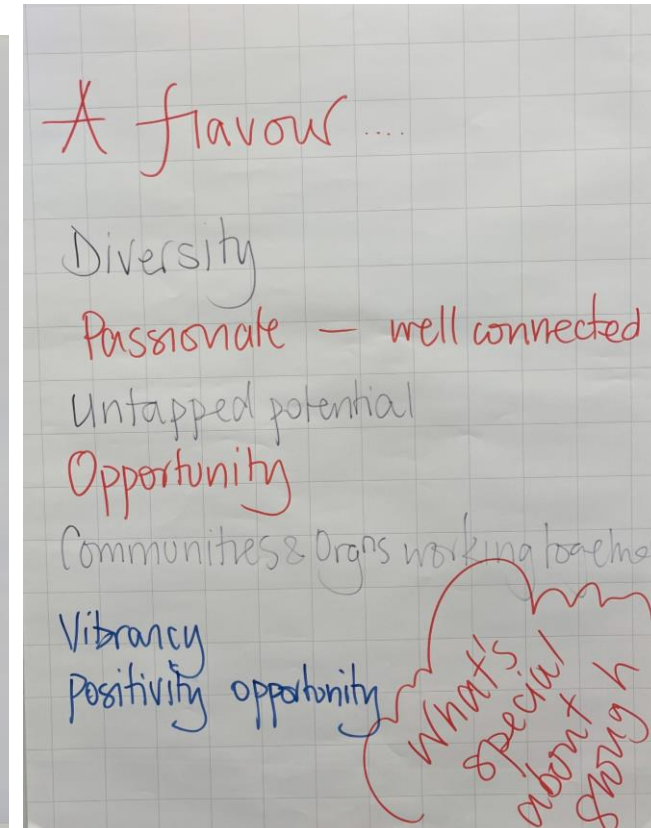 A flavour ....
Diversity
Passionate — well connected
Untapped potential
Opportunity
Communities & Orgns working
Vibrancy
Positivity opportunity
What's
special
about
Slough